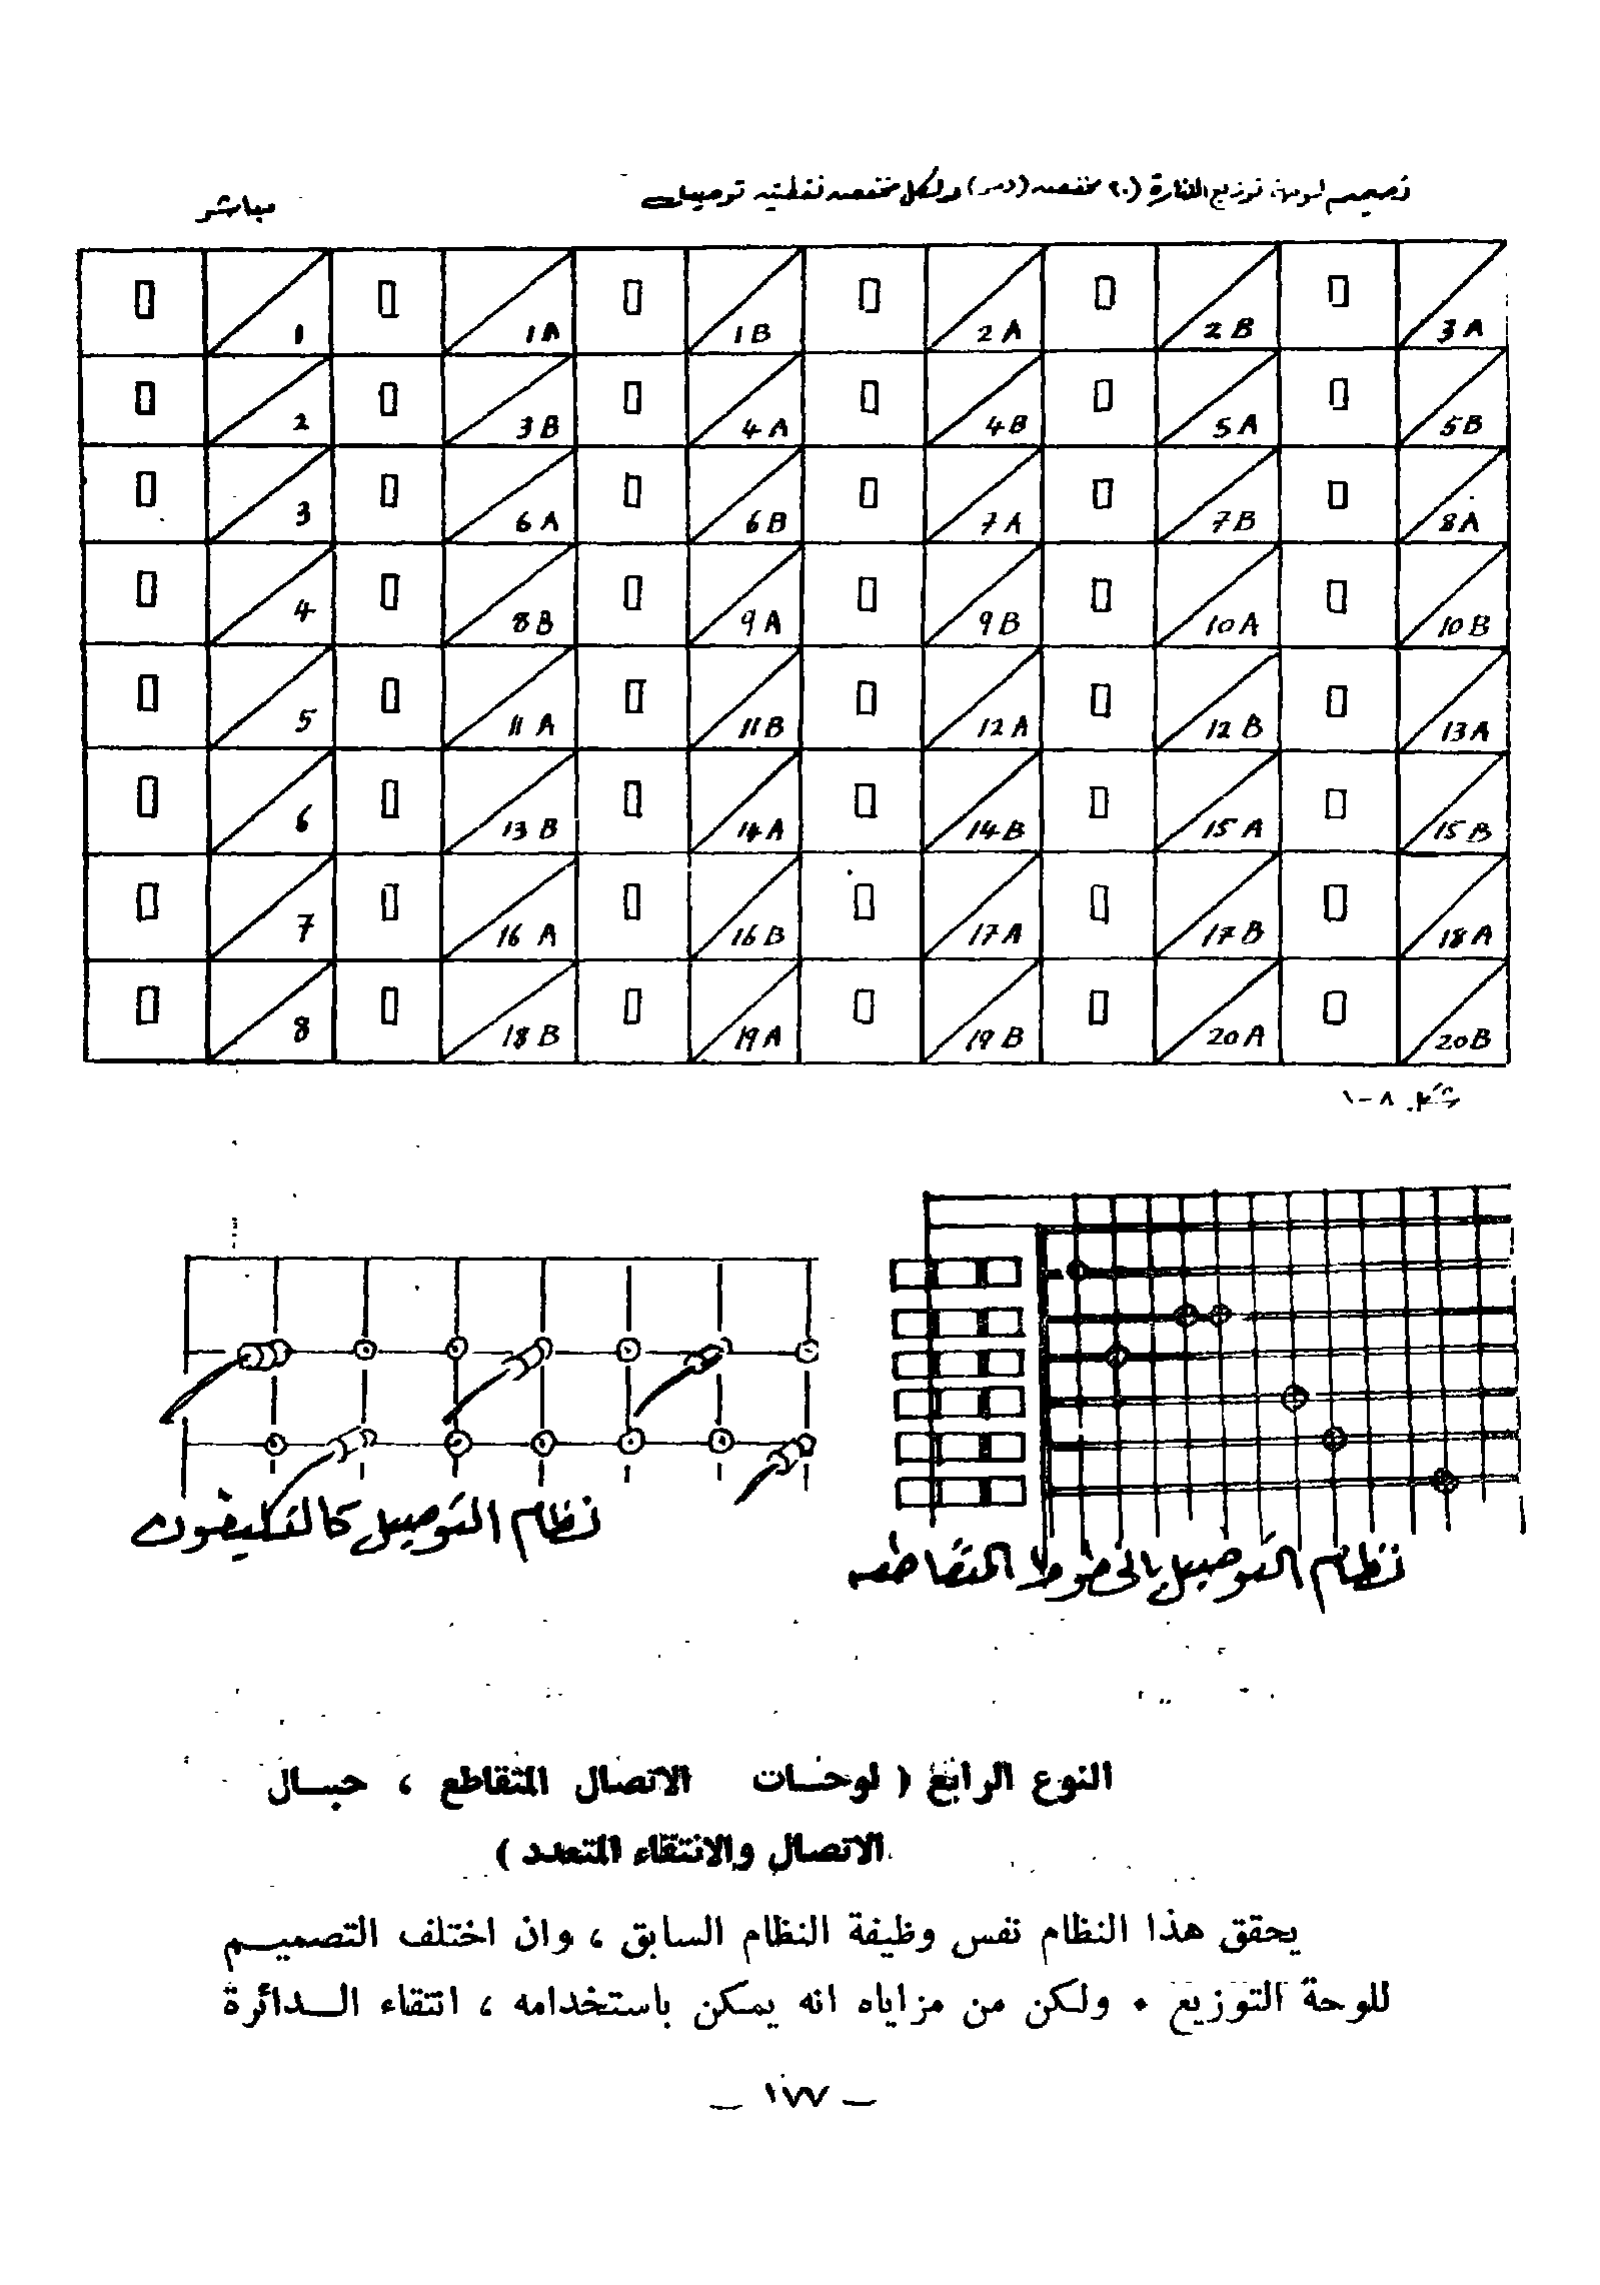 تصميم لوحة توزيع القدرة (٢٠ مخفض (دمر) ولكل مخفض نقطتي توصيل
مباشر
1 1A 1B 2A 2B 3A
2 3B 4A 4B 5A 5B
3 6A 6B 7A 7B 8A
4 8B 9A 9B 10A 10B
5 11A 11B 12A 12B 13A
6 13B 14A 14B 15A 15B
7 16A 16B 17A 17B 18A
8 18B 19A 19B 20A 20B
شكل ٨-١
نظام التوصيل بالخطوط المتقاطعه
نظام التوصيل كالتليفون
النوع الرابع ( لوحات الاتصال المتقاطع ، حبال
الاتصال والانتقاء المتعدد )
يحقق هذا النظام نفس وظيفة النظام السابق ، وان اختلف التصميم
للوحة التوزيع ٠ ولكن من مزاياه انه يمكن باستخدامه ، انتقاء الدائرة
— ١٧٧ —